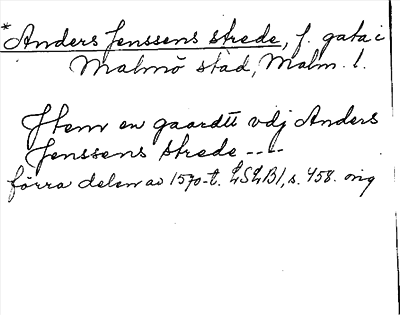 *Anders Jenssens strede, f. gata i
Malmö stad, Malm. l.
Jtem en gaardtt vdj Anders
Jenssens strede ----
förra delen av 1570-t. LSLB1, s. 458. orig